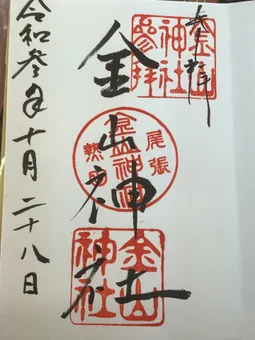 奉拝
金山神社
令和参年十月二十八日
金山神社参拝
尾張
金山神社
熱田
金山神社